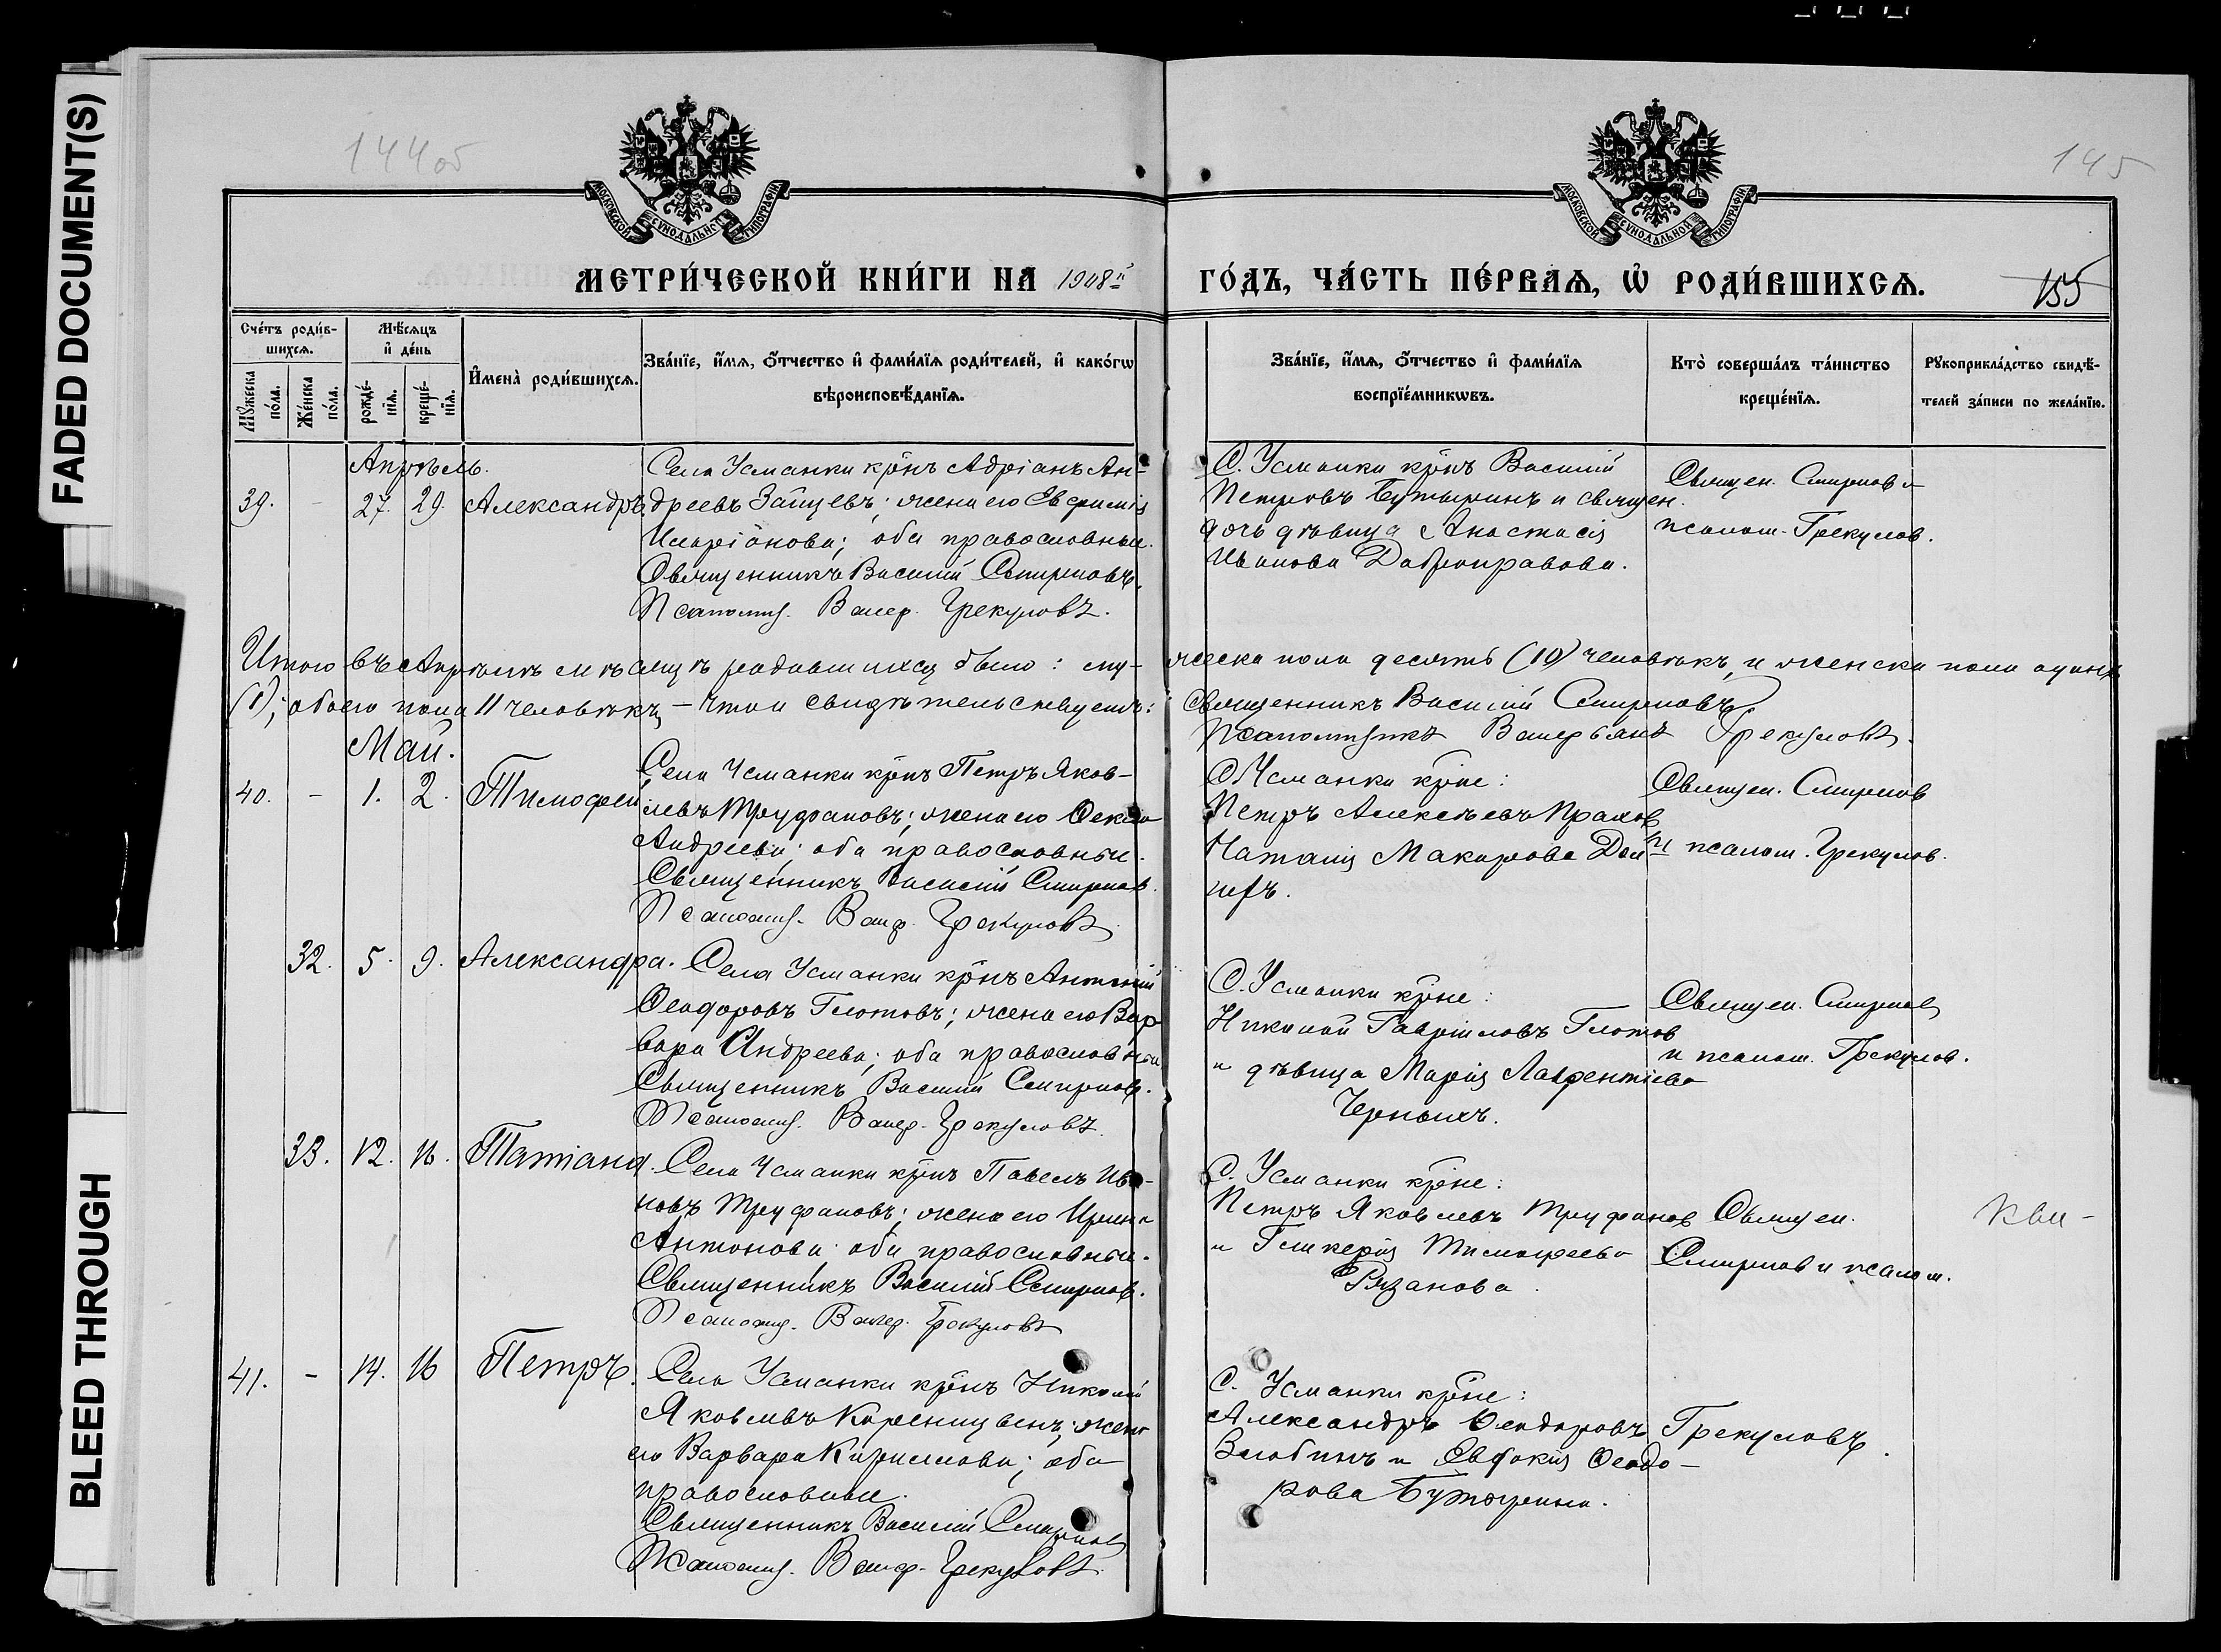 FADED DOCUMENT(S)
BLEED THROUGH
144об
145
МОСКОВСКОЙ СУНОДАЛЬНОЙ ТИПОГРАФІИ
МОСКОВСКОЙ СУНОДАЛЬНОЙ ТИПОГРАФІИ
МЕТРИ́ЧЕСКОЙ КНИ́ГИ НА 1908й ГО́ДЪ, ЧА́СТЬ ПЕ́РВАѦ, Ѽ РОДИ́ВШИХСѦ.
155
Сче́тъ роди́в-
шихсѧ.
Мꙋ́жеска по́ла.
Же́нска по́ла.
Мѣ́сѧцъ
и҆ де́нь
рожде́-
нїѧ.
креще́-
нїѧ.
И҆мена̀ роди́вшихсѧ.
Зва́нїе, и҆́мѧ, ѻ҆́тчество и҆ фами́лїѧ роди́телей, и҆ како́гѡ
вѣроисповѣ́данїѧ.
Зва́нїе, и҆́мѧ, ѻ҆́тчество и҆ фами́лїѧ
воспрїе́мникѡвъ.
Кто̀ соверша́лъ та́инство
креще́нїѧ.
Рꙋкоприкла́дство свидѣ́-
телей за́писи по жела́нїю.
Апрѣль.
39. - 27. 29. Александръ
Села Усманки крнъ Адріанъ Ан-
дреевъ Зайцевъ; жена его Евфимія
Иларіонова; оба православные.
Священникъ Василій Смирновъ.
Псаломщ. Валер. Грекуловъ.
С. Усманки крнъ Василій
Петровъ Бутыринъ и священ.
дочь дѣвица Анастасія
Иванова Добронравова.
Священ. Смирнов и
псалом. Грекулов.
Итого въ Апрѣлѣ мѣсяцѣ родившихся было: му- жеска пола десять (10) человѣкъ, и женска пола одинъ
(1); обоего пола 11 человѣкъ, - Что и свидѣтельствуемъ: Священникъ Василій Смирновъ
Псаломщикъ Валеріанъ Грекуловъ.
Май.
40. - 1. 2. Тимофей
Села Усманки крнъ Петръ Яков-
левъ Труфановъ; жена его Ѳекла
Андреева; оба православные.
Священникъ Василій Смирнов.
Псаломщ. Валер. Грекуловъ
С. Усманки крне:
Петръ Алексѣевъ
Наталія Макарова
Священ. Смирнов
и псалом. Грекулов.
32. 5. 9. Александра.
Села Усманки крнъ Антоній
Ѳеодоровъ Глотовъ; жена его Вар
вара Андреева; оба православные
Священникъ Василій Смирнов.
Псаломщ. Валер. Грекуловъ.
С. Усманки крне:
Николай Гавріиловъ Глотов
и дѣвица Марія Лаврентіева
Черныхъ.
Священ. Смирнов
и псалом. Грекулов.
33. 12. 16. Татіана.
Села Усманки крнъ Павелъ Ива-
новъ Труфановъ; жена его Ирина
Антонова; оба православные.
Священникъ Василій Смирнов.
Псаломщ. Валер. Грекуловъ
С. Усманки крне:
Петръ Яковлевъ Труфанов
и Гликерія Тимофеева
Рязанова.
Священ.
Смирнов и псалом.
41. - 14. 16 Петръ.
Села Усманки крнъ Николай
Яковлевъ жена
его Варвара Кириллова; оба
православные.
Священникъ Василій Смирнов
Псаломщ. Валер. Грекуловъ.
С. Усманки крне:
Александръ Ѳеодоровъ
Злобинъ и Евдокія Ѳеодо-
рова Бутырина.
Грекуловъ.